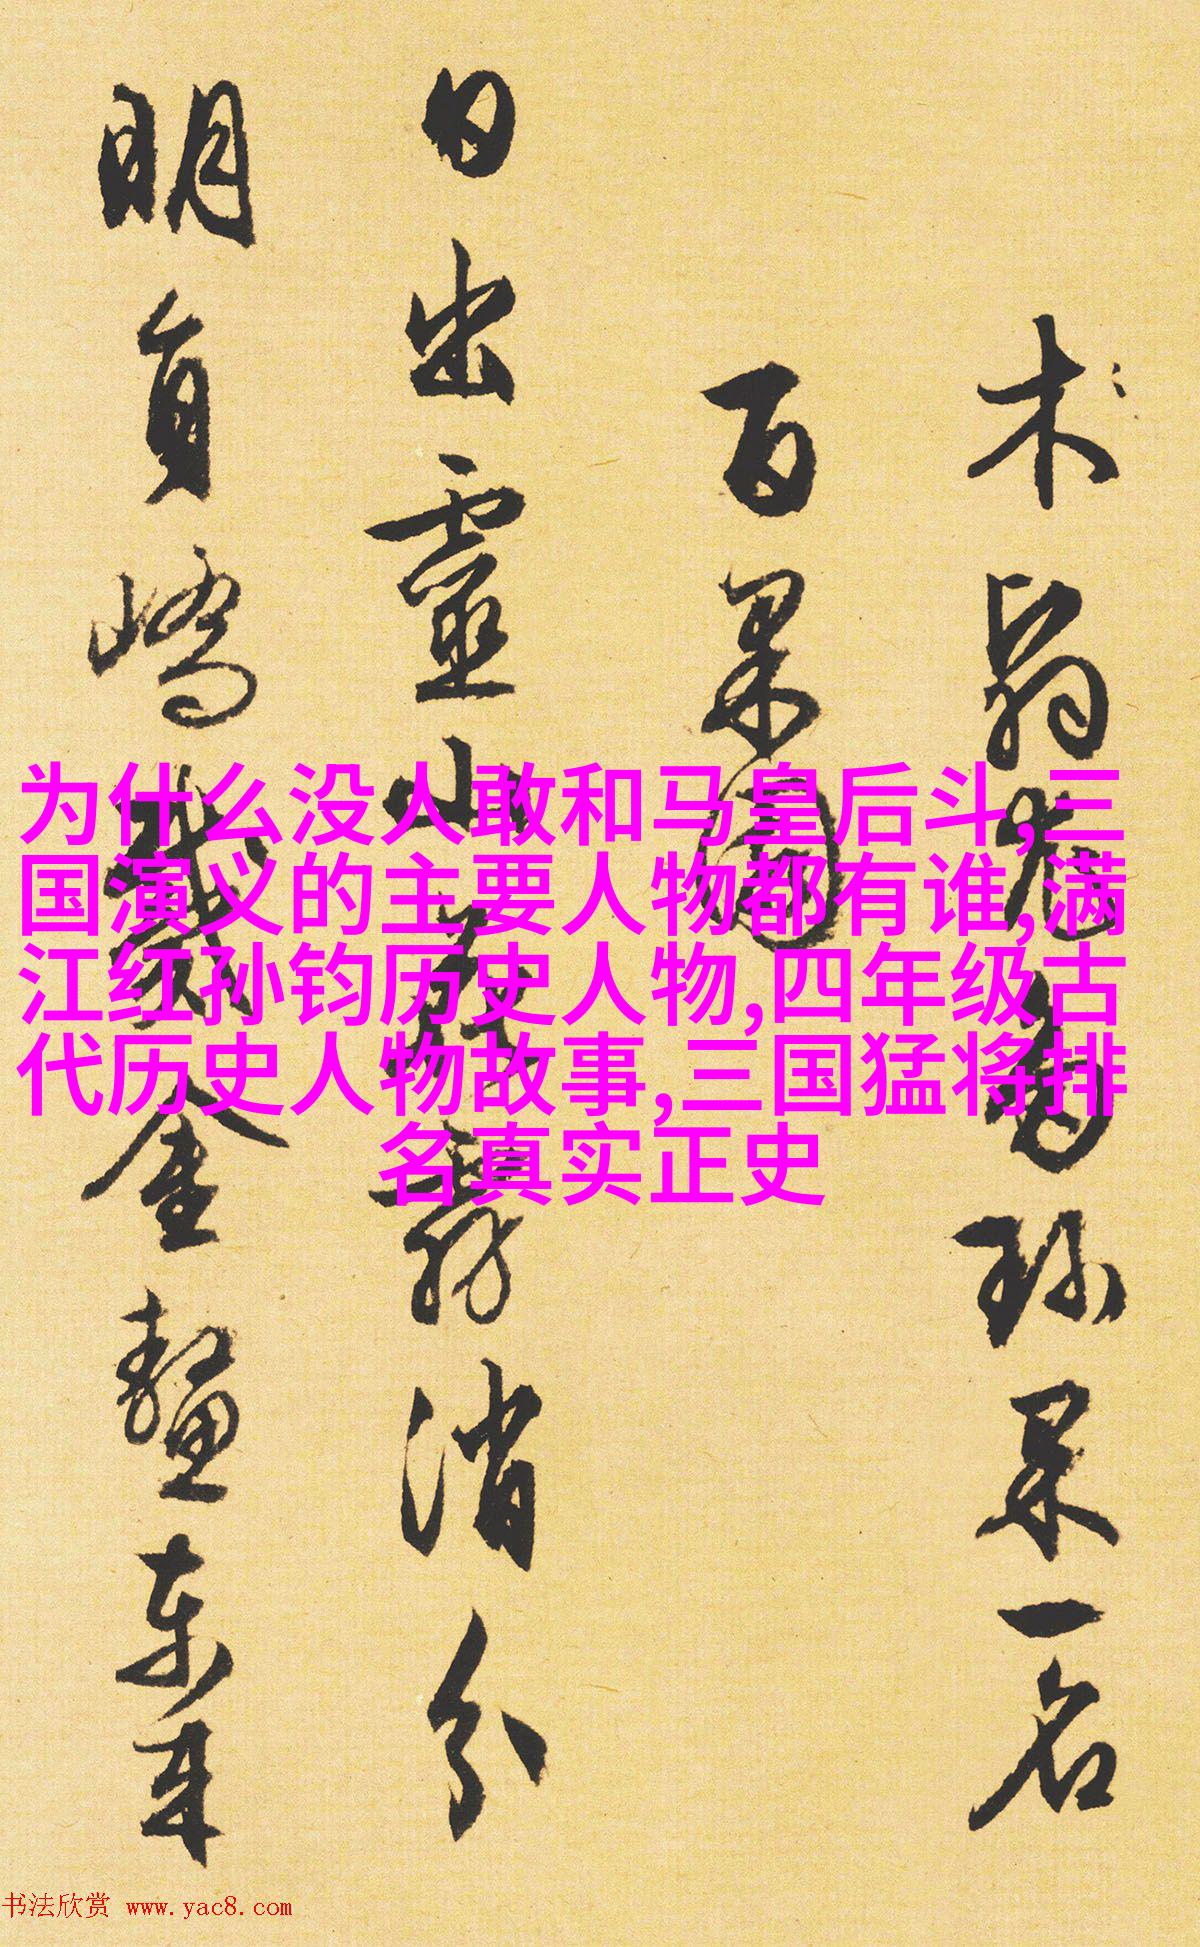 木尤多珎果一名
百果園
日出靈山花霧消分
明員嶠戴金鼇東來
为什么没人敢和马皇后斗,三
国演义的主要人物都有谁,满
江红孙钧历史人物,四年级古
代历史人物故事,三国猛将排
名真实正史
书法欣赏 www.yac8.com